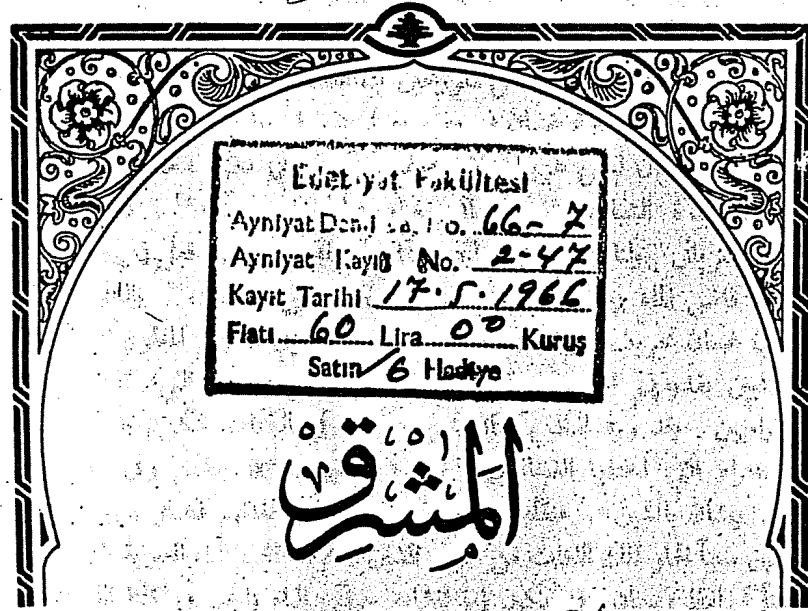 Edebiyat Fakültesi
Ayniyat No. 66-7
Ayniyat Kayıt No. 2-47
Kayıt Tarihi 17.5.1966
Fiatı 60 Lira 00 Kuruş
Satın Hediye
المَشرِق